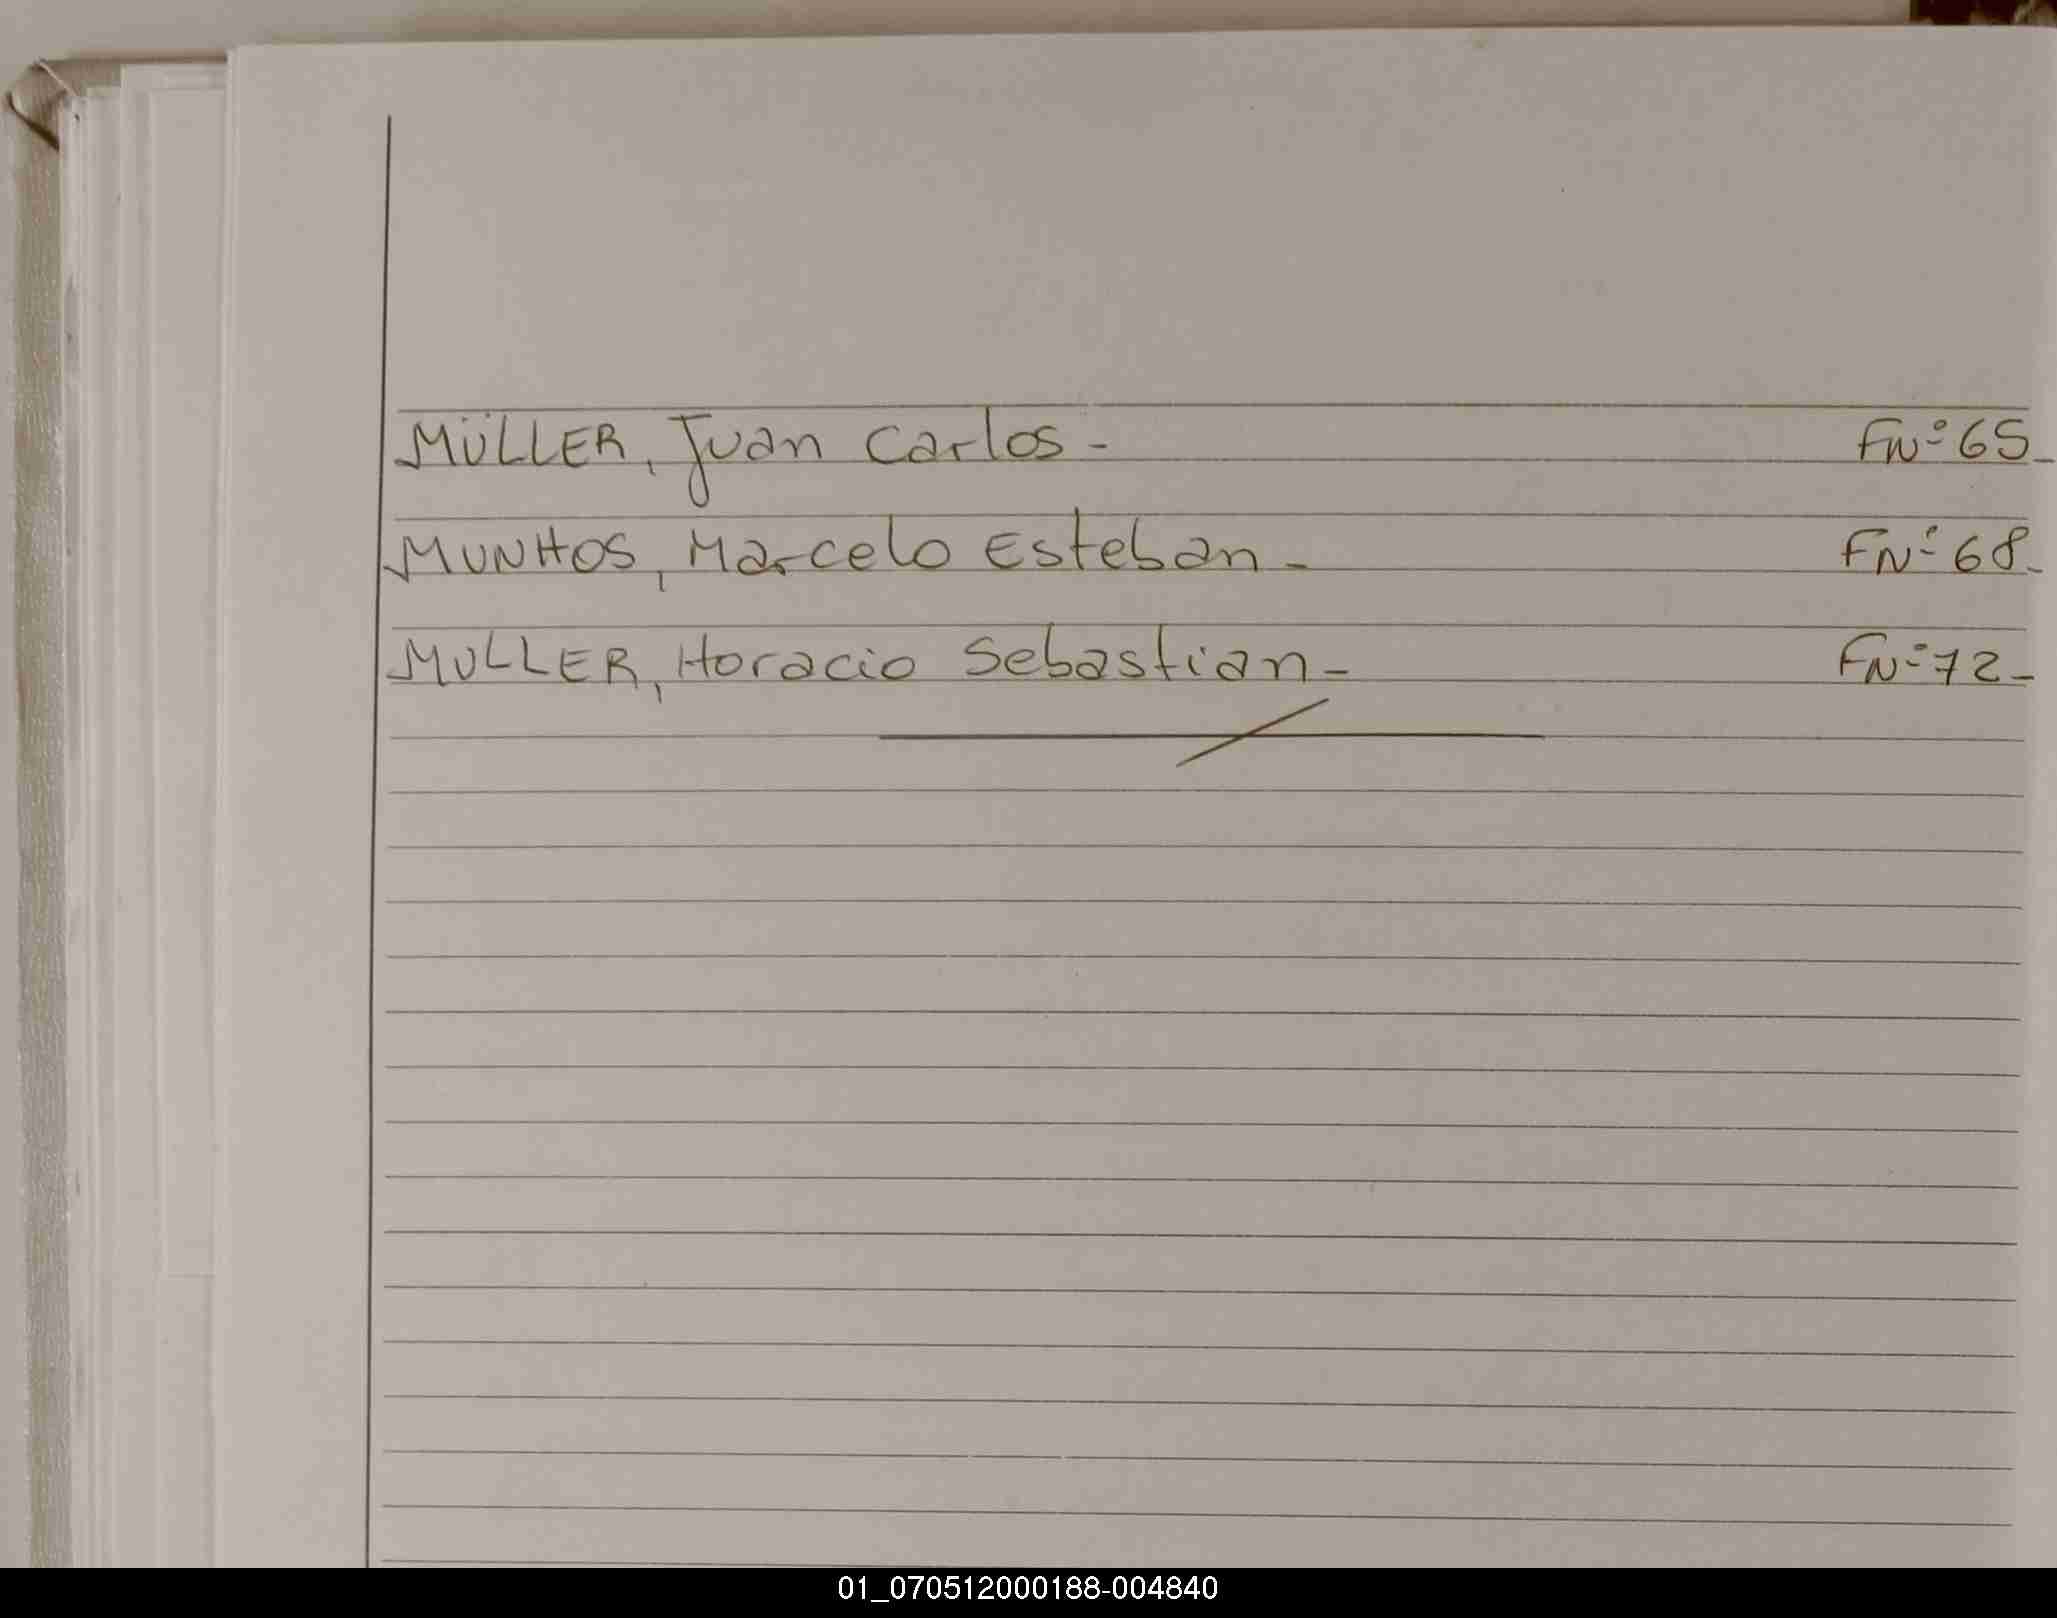 MÜLLER, Juan Carlos - FNº 65 -
MUNHOS, Marcelo Esteban - FNº 68 -
MULLER, Horacio Sebastian - FNº 72 -
01_070512000188-004840